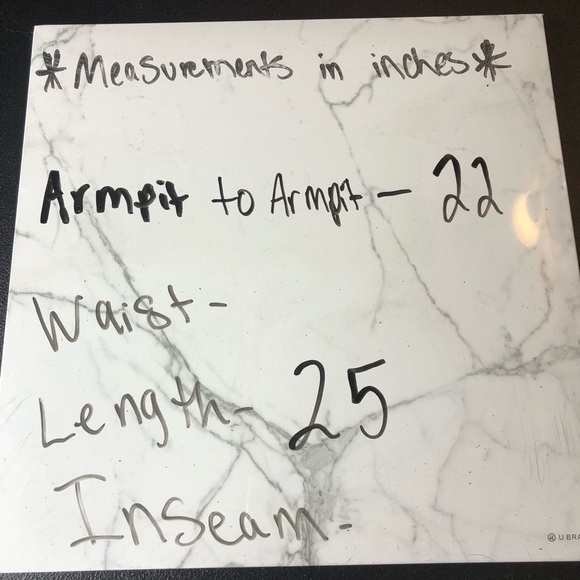 *Measurements in inches*
Armpit to Armpit - 22
Waist -
Length - 25
Inseam -
U BRA